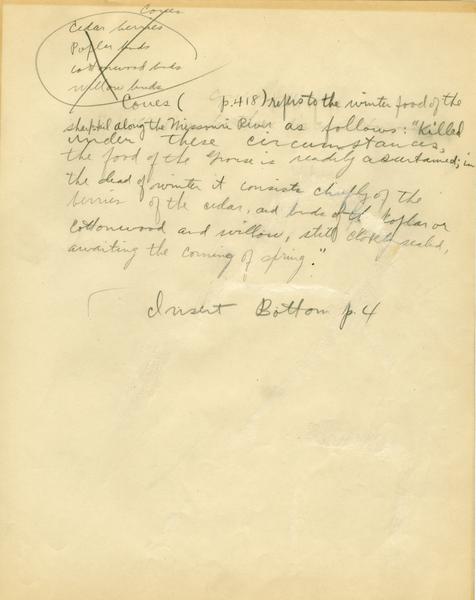 Coues
Cedar berries
Poplar buds
Cottonwood buds
willow buds
Coues ( p. 418) refers to the winter food of the
sharptail along the Missouri River as follows: "Killed
under these circumstances,
the food of the Grouse is readily ascertained; in
the dead of winter it consists chiefly of the
berries of the cedar, and buds of the poplar or
cottonwood and willow, still closely sealed,
awaiting the coming of spring."
Insert Bottom p. 4